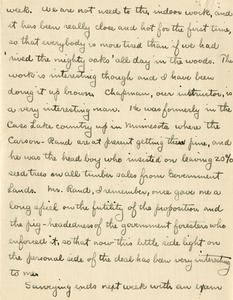 week. We are not used to the indoor work, and
it has been really close and hot for the first time,
so that everybody is more tired than if we had
'mixed the mighty oaks' all day in the woods. The
work is interesting though and I have been
doing it up brown. Chapman, our instructor, is a
very interesting man. He was formerly in the
Cass Lake country up in Minnesota where the
Carson-Rand are at present getting their pine, and
he was the head boy who insisted on leaving 20%
seed trees on all timber sales from Government
lands. Mr. Rand, I remember, once gave me a
long spiel on the futility of the proposition and
the pig-headedness of the government foresters who
enforced it, so that now this little side light on
the personal side of the deal has been very interesting
to me.
Surveying ends next week with an exam